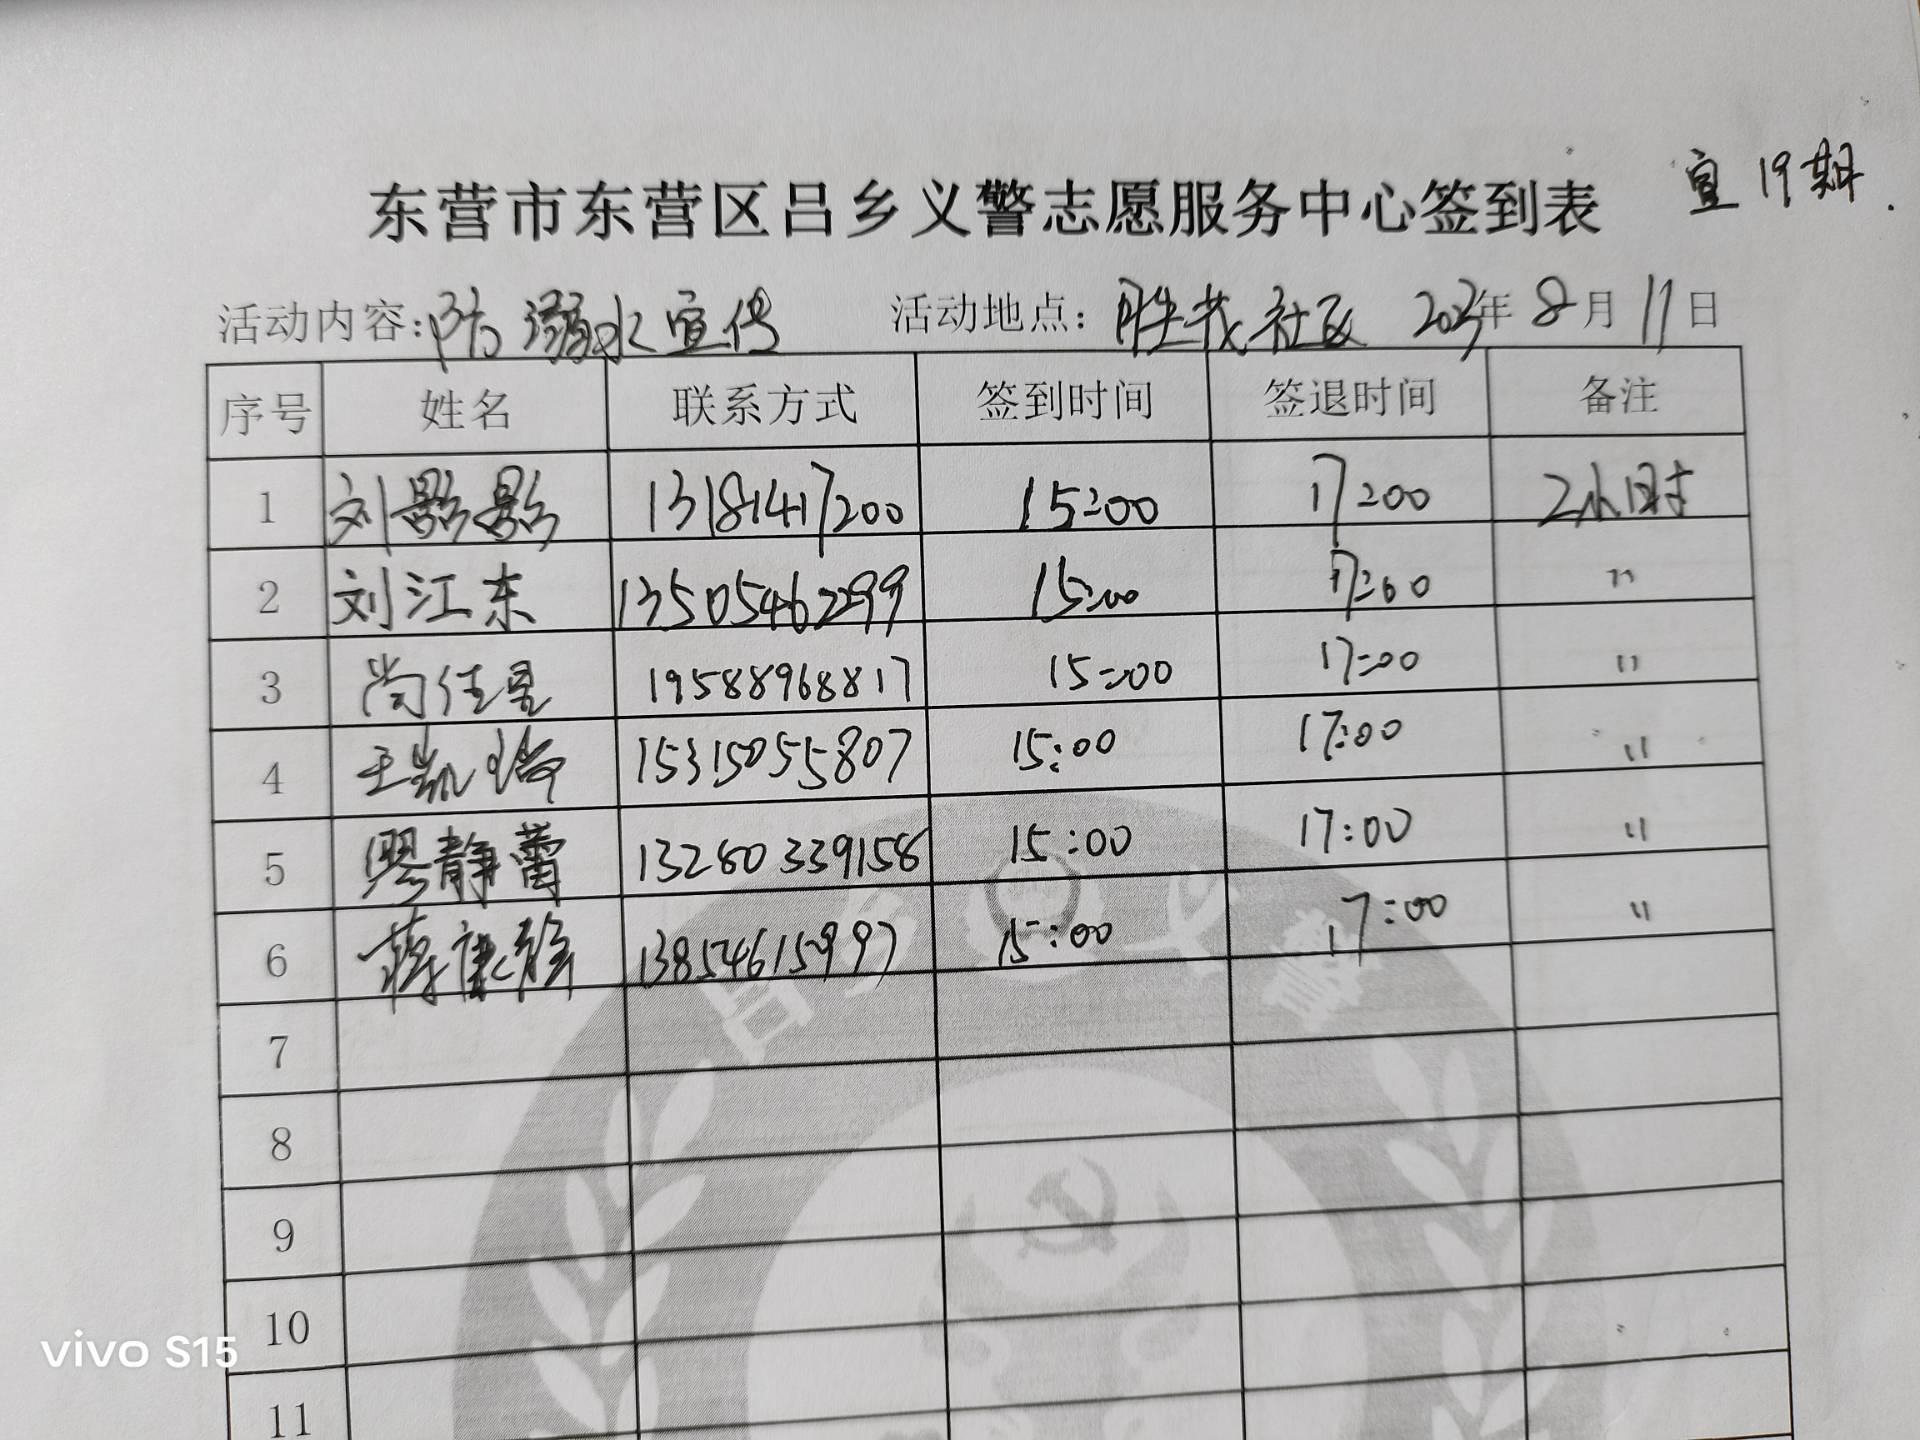 宣19期.
东营市东营区吕乡义警志愿服务中心签到表
活动内容:防溺水宣传 活动地点:胜茂社区 2023年8月11日
序号 姓名 联系方式 签到时间 签退时间 备注
1 刘影影 13181417200 15:00 17:00 2小时
2 刘江东 13505462299 15:00 17:00 〃
3 尚佳星 19588968817 15:00 17:00 〃
4 王凯 15315055807 15:00 17:00 〃
5 静蕾 13280339158 15:00 17:00 〃
6 蒋康 13854615997 15:00 17:00 〃
7
8
9
10
11
吕乡义警
vivo S15